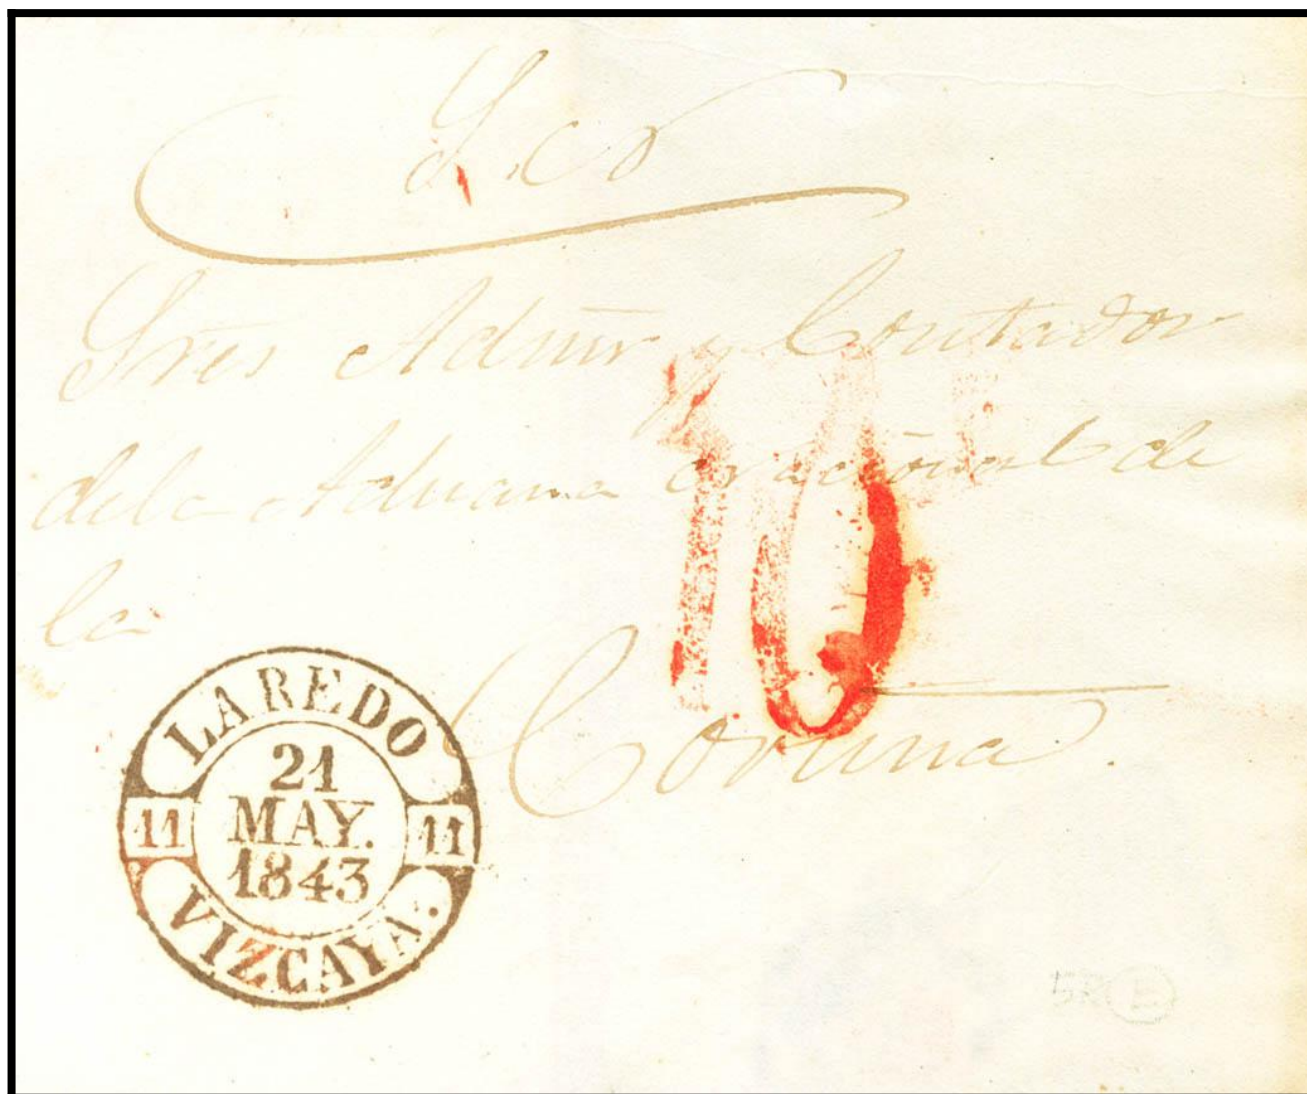 Sres Admor y Contador
de la Aduana nacional de
la
Coruña.
10
LAREDO
11
21
MAY.
1843
11
VIZCAYA.